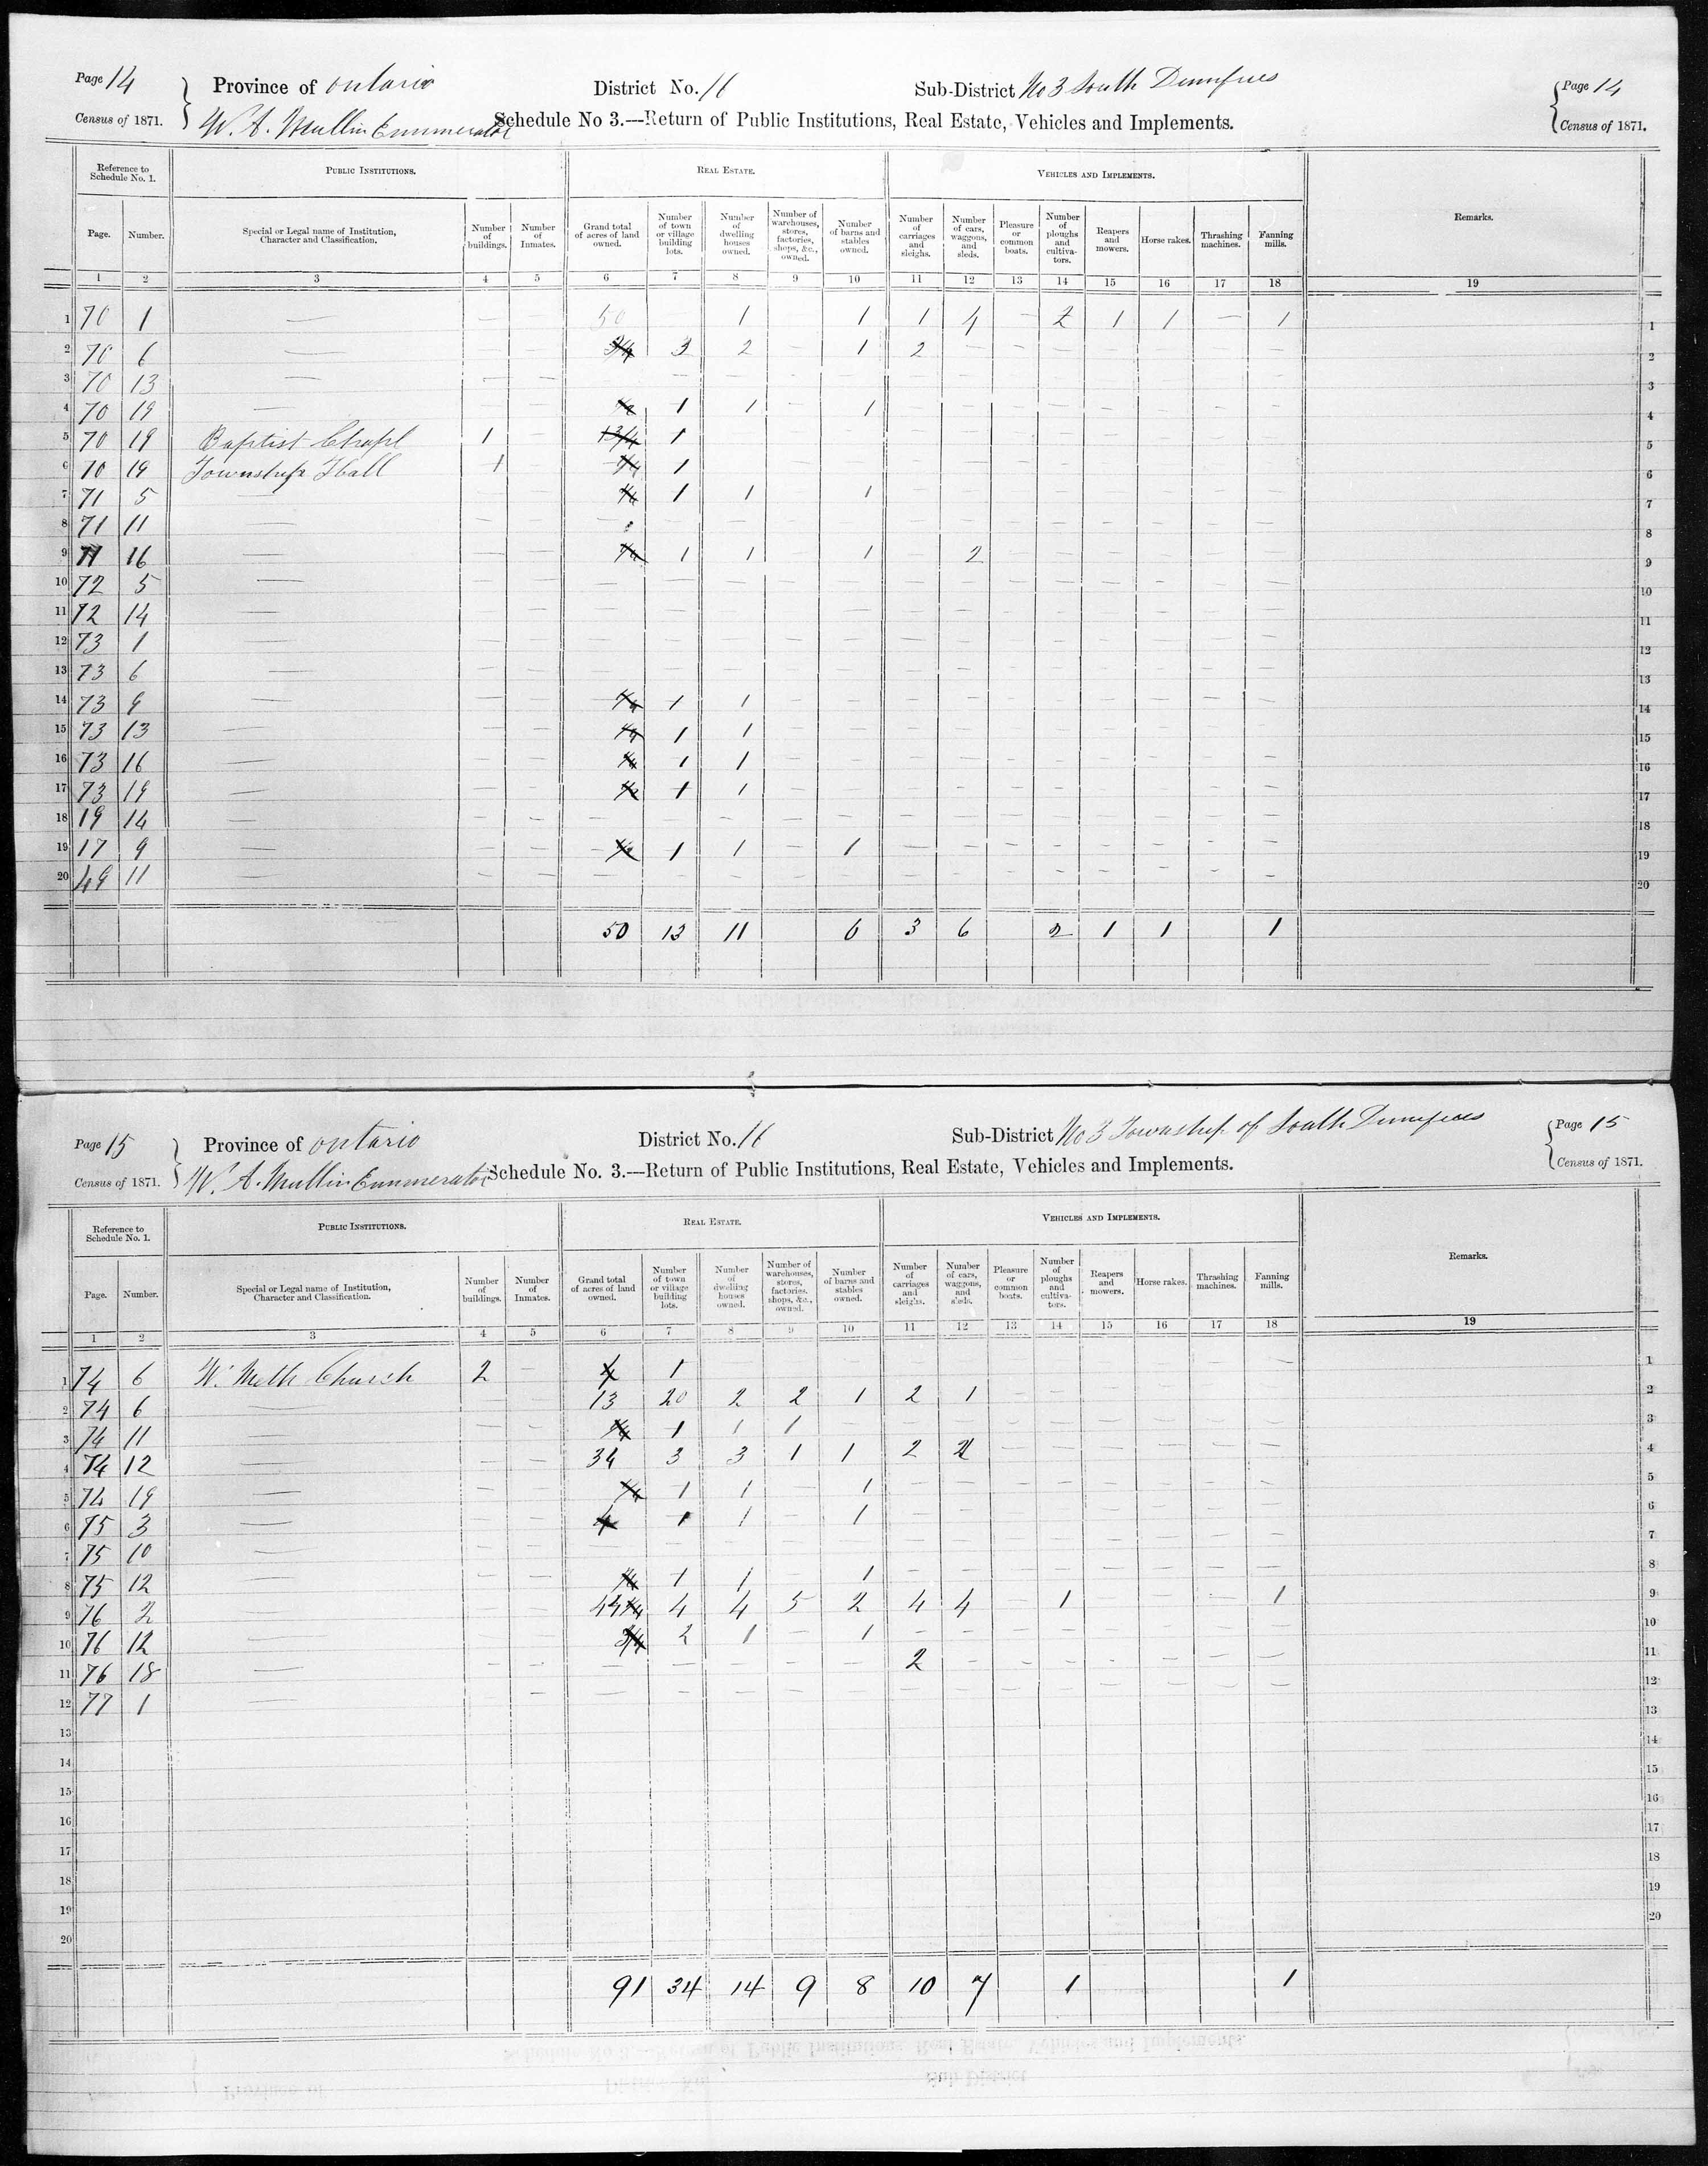 Page 14 Province of Ontario District No. 16 Sub-District No 3 South Dumfries Page 14
Census of 1871. W. A. Mullin Enumerator Schedule No 3.—Return of Public Institutions, Real Estate, Vehicles and Implements. Census of 1871.
Reference to Schedule No. 1. PUBLIC INSTITUTIONS. REAL ESTATE. VEHICLES AND IMPLEMENTS. Remarks.
Page. Number. Special or Legal name of Institution, Character and Classification. Number of buildings. Number of Inmates. Grand total of acres of land owned. Number of town or village building lots. Number of dwelling houses owned. Number of warehouses, stores, factories, shops, &c., owned. Number of barns and stables owned. Number of carriages and sleighs. Number of cars, waggons, and sleds. Pleasure or common boats. Number of ploughs and cultivators. Reapers and mowers. Horse rakes. Thrashing machines. Fanning mills.
1 2 3 4 5 6 7 8 9 10 11 12 13 14 15 16 17 18 19
1 70 1 — — 50 1 1 1 4 — 2 1 1 — 1 1
2 70 6 — 3/4 3 2 1 2 — — — — — — — 2
3 70 13 — — — — — — — — — 3
4 70 19 — 1 1 — 1 — — — — — — — — 4
5 70 19 Baptist Chapl 1 — 1 3/4 1 — — — — — — — — 5
6 70 19 Township Hall 1 1/4 1 — — — — — — — — 6
7 71 5 — — 1/4 1 1 1 — — — — — — — — 7
8 71 11 — — — — — — — — — — — — 8
9 71 16 — — — 1/4 1 1 1 — 2 — — — — — — 9
10 72 5 — — — — — — — — — — — — 10
11 72 14 — — — — — — — — — — — — 11
12 73 1 — — — — — — — — — — — — 12
13 73 6 — — — — — — — — — — — — 13
14 73 9 — — — 1/4 1 1 — — — — — — — — — — 14
15 73 13 — — — 1/4 1 1 — — — — — — — — — — 15
16 73 16 — — — 1/4 1 1 — — — — — — — — — — 16
17 73 19 — — — 1 1 — — — — — — — — — — 17
18 19 14 — — — — — — — — — — — — — — — — 18
19 17 9 — — — 1 1 — 1 — — — — — — — — 19
20 49 11 — — — — — — — — — — — — — — — — 20
50 13 11 6 3 6 2 1 1 1
Page 15 Province of Ontario District No. 16 Sub-District No 3 Township of South Dumfries Page 15
Census of 1871. W. A. Mullin Enumerator Schedule No. 3.—Return of Public Institutions, Real Estate, Vehicles and Implements. Census of 1871.
Reference to Schedule No. 1. PUBLIC INSTITUTIONS. REAL ESTATE. VEHICLES AND IMPLEMENTS. Remarks.
Page. Number. Special or Legal name of Institution, Character and Classification. Number of buildings. Number of Inmates. Grand total of acres of land owned. Number of town or village building lots. Number of dwelling houses owned. Number of warehouses, stores, factories. shops, &c., owned. Number of barns and stables owned. Number of carriages and sleighs. Number of cars, waggons, and sleds. Pleasure or common boats. Number of ploughs and cultivators. Reapers and mowers. Horse rakes. Thrashing machines. Fanning mills.
1 2 3 4 5 6 7 8 9 10 11 12 13 14 15 16 17 18 19
1 74 6 W. Meth Church 2 — 1 — — — — — — — — 1
2 74 6 — — 13 20 2 2 1 2 1 — — — — — — 2
3 74 11 — — — 1/4 1 1 1 — — — — — — 3
4 74 12 — — — 34 3 3 1 1 2 2 — — — — — — 4
5 74 19 — — — 1/4 1 1 — 1 — — — — — — 5
6 75 3 — — — 1 1 — 1 — — — — — — — — 6
7 75 10 — — — — — — — — — — — — 7
8 75 12 — — — 1/4 1 1 1 — — — — — — — — 8
9 76 2 — — — 44 1/4 4 4 5 2 4 4 — 1 — — — 1 9
10 76 12 — — — 3/4 2 1 — 1 — — — — — — — — 10
11 76 18 — — — — — — — — 2 — — — — — — — 11
12 77 1 — — — — — — — — — — — — — — — 12
13 13
14 14
15 15
16 16
17 17
18 18
19 19
20 20
91 34 14 9 8 10 7 1 1